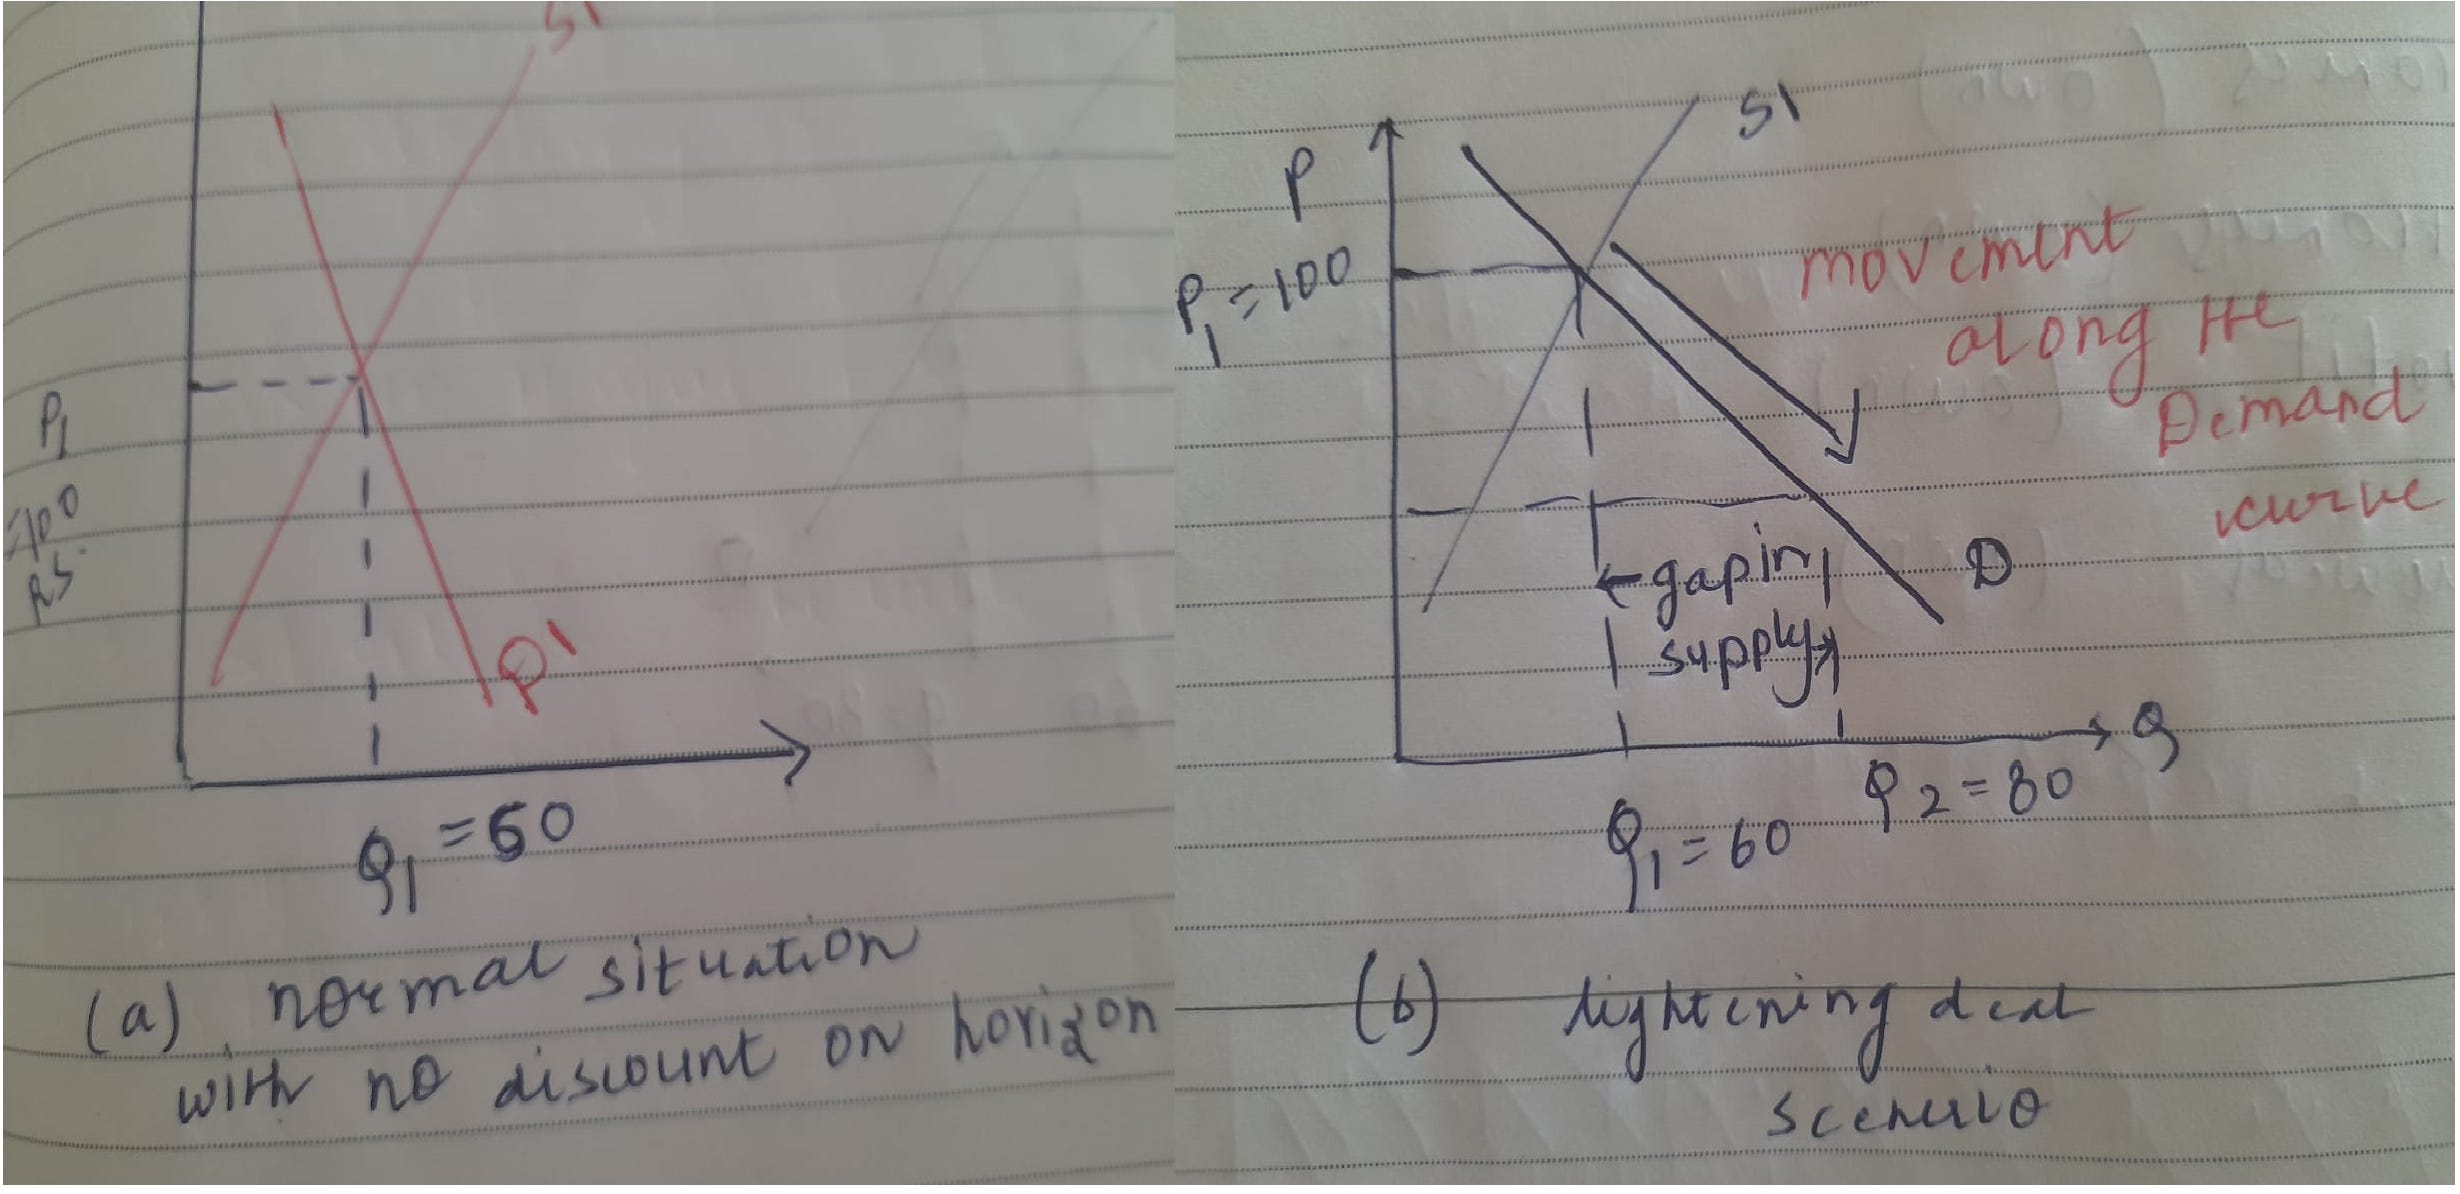 S1
P1
=100
RS.
P1
Q1 = 60
(a) normal situation
with no discount on horizon
P
S1
P1 = 100
movement
along the
Demand
curve
D
← gap in
supply →
Q
Q1 = 60
Q2 = 80
(b) lightening deal
scenerio